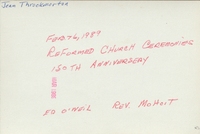 Jean Throckmorton
Feb 26, 1989
Reformed Church Ceremonies
150th Anniversery
Ed O'Neil Rev. Mohuit